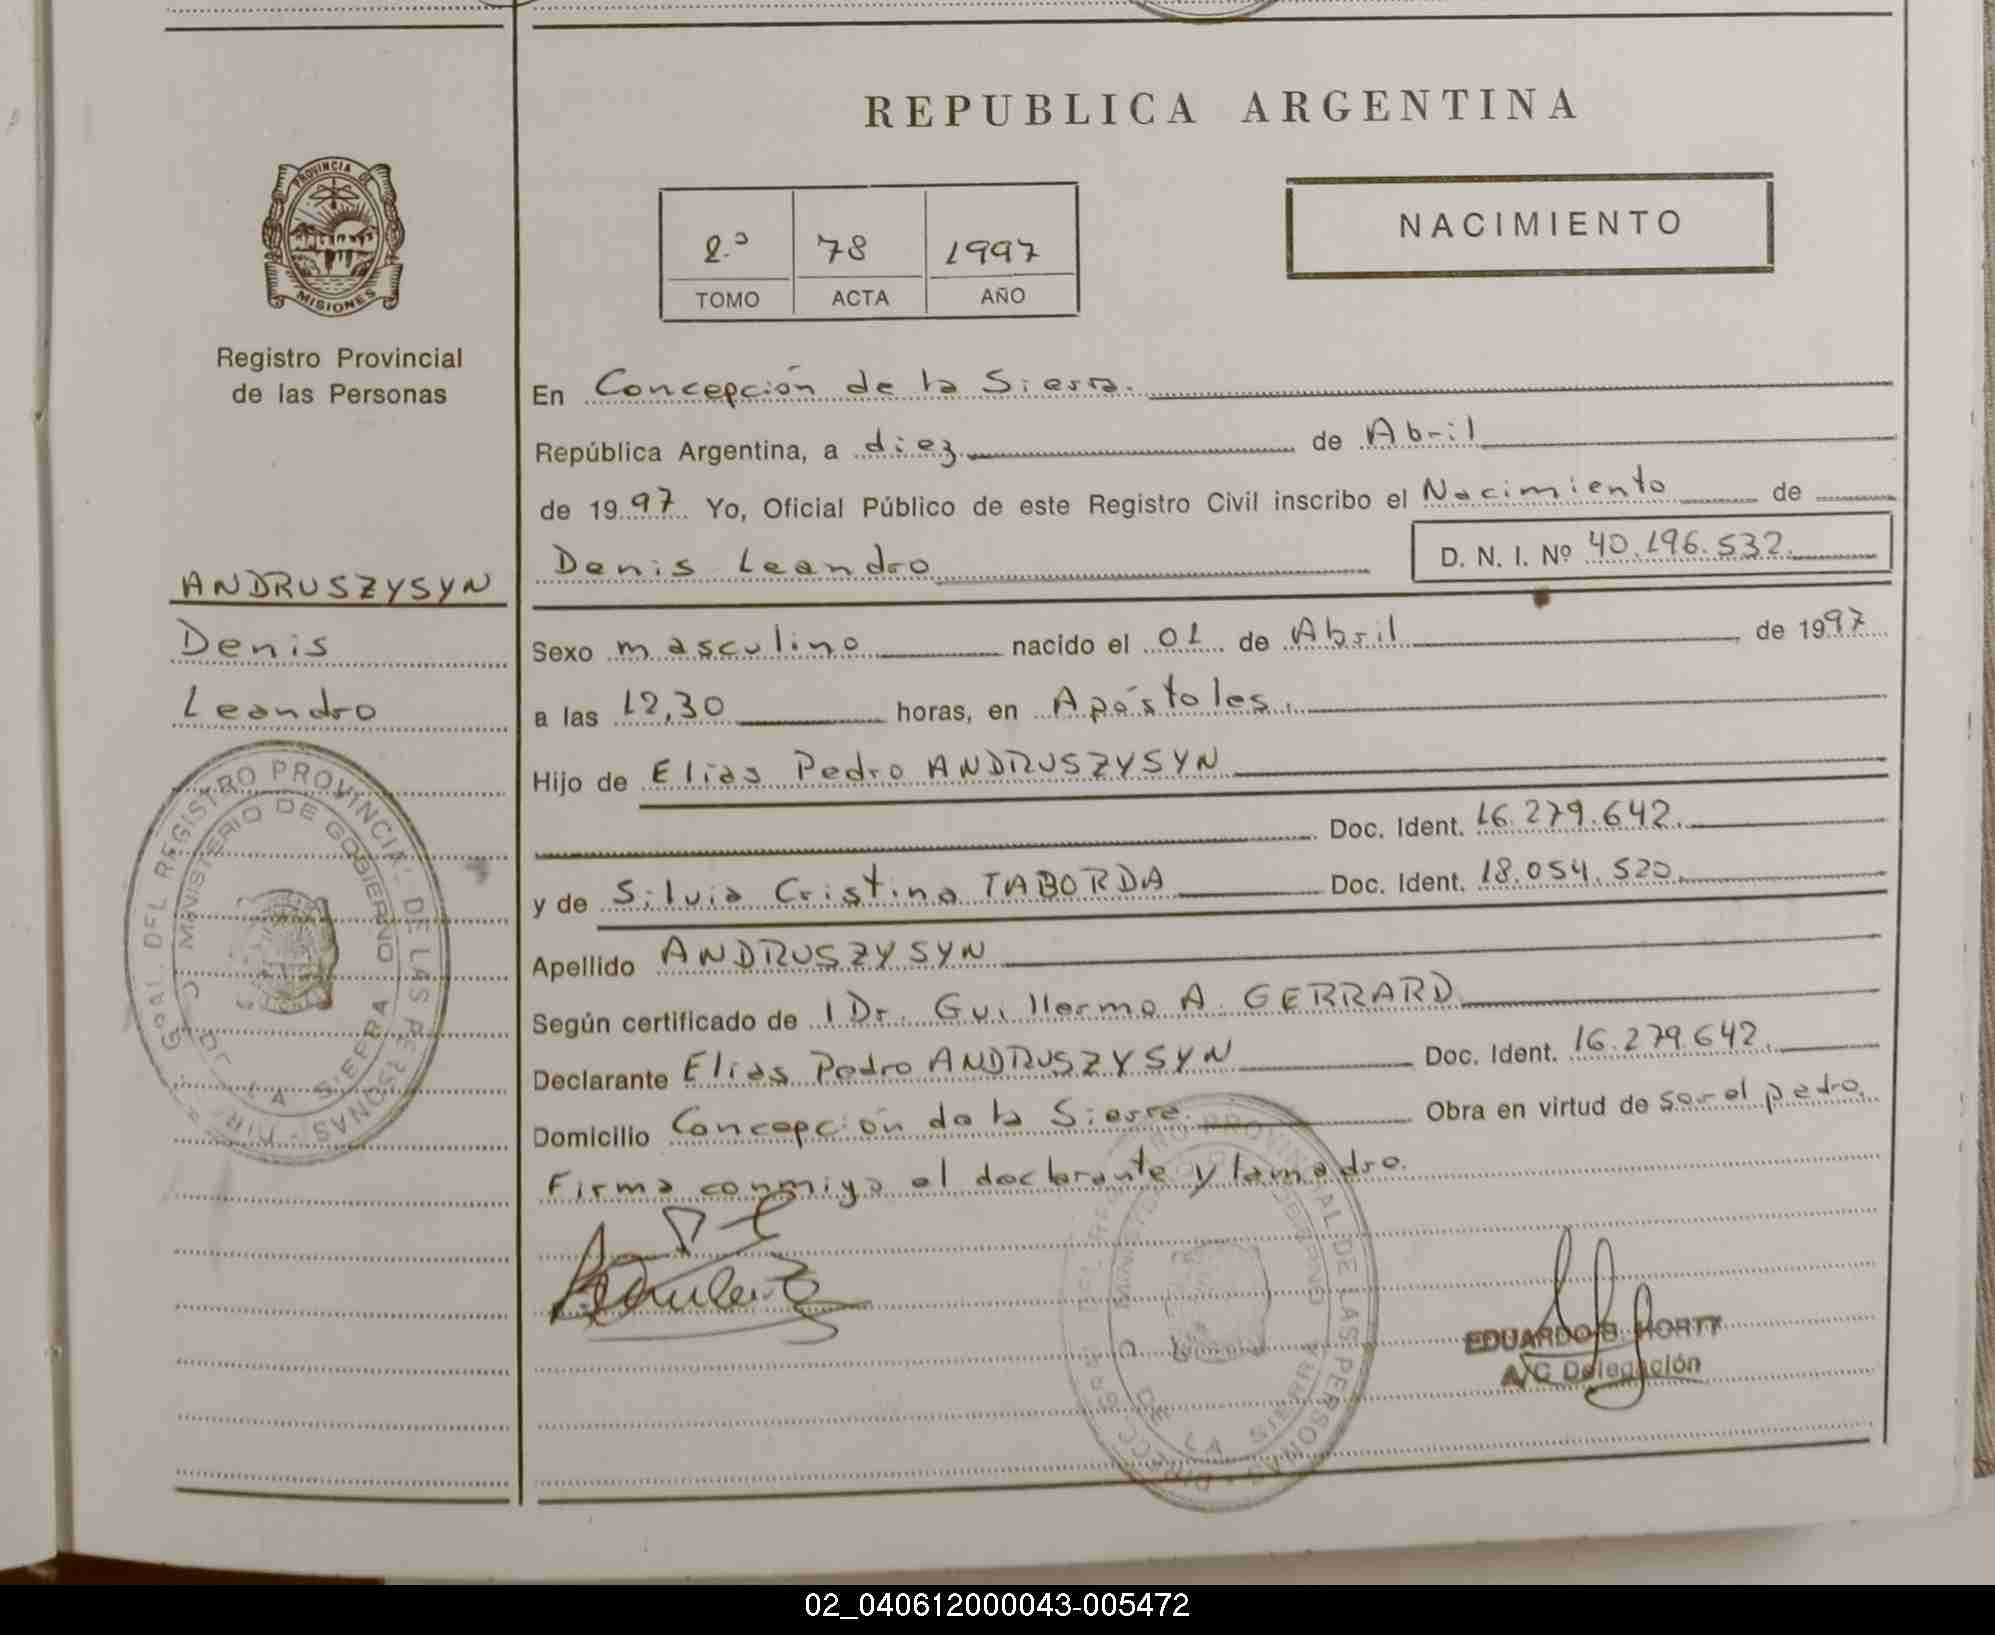 REPUBLICA ARGENTINA
PROVINCIA DE
MISIONES
Registro Provincial
de las Personas
NACIMIENTO
2.º 78 1997
TOMO ACTA AÑO
En Concepción de la Sierra.
República Argentina, a diez de Abril
de 1997 Yo, Oficial Público de este Registro Civil inscribo el Nacimiento de
Denis Leandro D. N. I. Nº 40.196.532.
ANDRUSZYSYN
Denis
Leandro
Sexo masculino nacido el 01 de Abril de 1997
a las 12,30 horas, en Apóstoles.
Hijo de Elias Pedro ANDRUSZYSYN
Doc. Ident. 16.279.642.
y de Silvia Cristina TABORDA Doc. Ident. 18.054.520.
Apellido ANDRUSZYSYN
Según certificado de l Dr. Guillermo A. GERRARD
Declarante Elias Pedro ANDRUSZYSYN Doc. Ident. 16.279.642.
Domicilio Concepción de la Sierra. Obra en virtud de ser el padre.
Firma conmigo el declarante y la madre.
GRAL DEL REGISTRO PROVINCIAL DE LAS PERSONAS
MINISTERIO DE GOBIERNO
DE LA SIERRA
PROVINCIAL DE LAS PERSONAS
DE LA SIERRA
EDUARDO
A/C Delegación
02_040612000043-005472